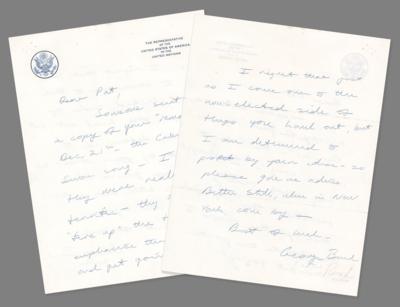 THE REPRESENTATIVE
OF THE
UNITED STATES OF AMERICA
TO THE
UNITED NATIONS
Dear Pat
Someone sent
a copy of your
Dec 21st - the
Swan song - I
they were
terrific - they
"fire up" the
emphasize
and put your
I regret that just
as I come over to the
non-elected side of
things you haul out, but
I am determined to
by your ideas - so
please give us advice
Better still, when in New
York come by -
Best of luck -
George Bush